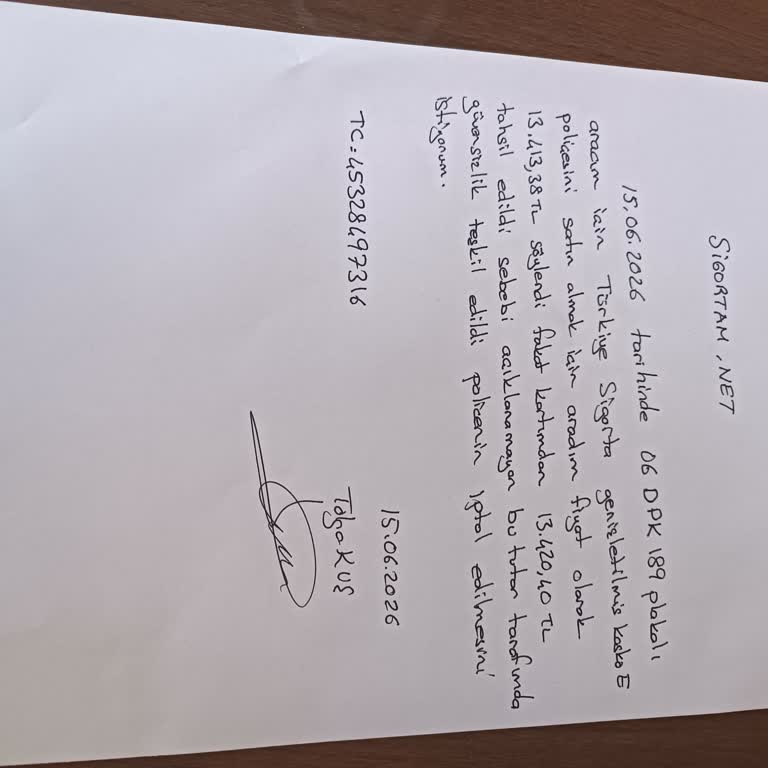 SİGORTAM.NET
15.06.2026 tarihinde 06 DPK 189 plakalı
aracım için Türkiye Sigorta genişletilmiş kasko E
poliçesini satın almak için aradım fiyat olarak
13.413,38 TL söylendi fakat kartımdan 13.420,40 TL
tahsil edildi sebebi açıklanamayan bu tutar tarafımda
güvensizlik teşkil edildi poliçenin iptal edilmesini
istiyorum.
15.06.2026
TC: 45328497316
Tolga KUŞ